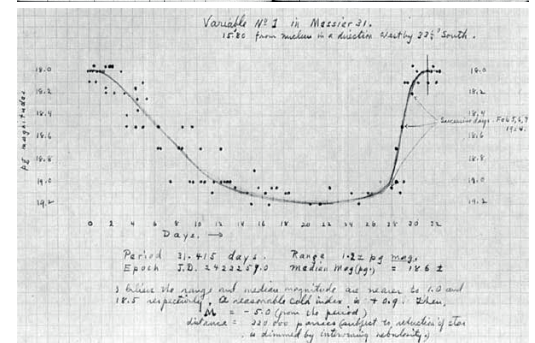 Variable Nº 1 in Messier 31.
15.80 from nucleus in a direction West by 33½° South.
18.0 18.0
18.2 18.2
18.4 18.4
Successive days, Feb 5, 6, 7
1924.
18.6 18.6
18.8 18.8
19.0 19.0
19.2 19.2
pg magnitudes
0 2 4 6 8 10 12 14 16 18 20 22 24 26 28 30 32
Days. →
Period 31.415 days. Range 1.2± pg mag.
Epoch J.D. 2423259.0 Median Mag(pg.) = 18.6 ±
I believe the range and median magnitude are nearer to 1.0 and
18.5 respectively. A reasonable cold index is +0.9. Then,
M = -5.0 (from the period)
distance = parsecs (subject to reduction if star
is dimmed by intervening nebulosity)